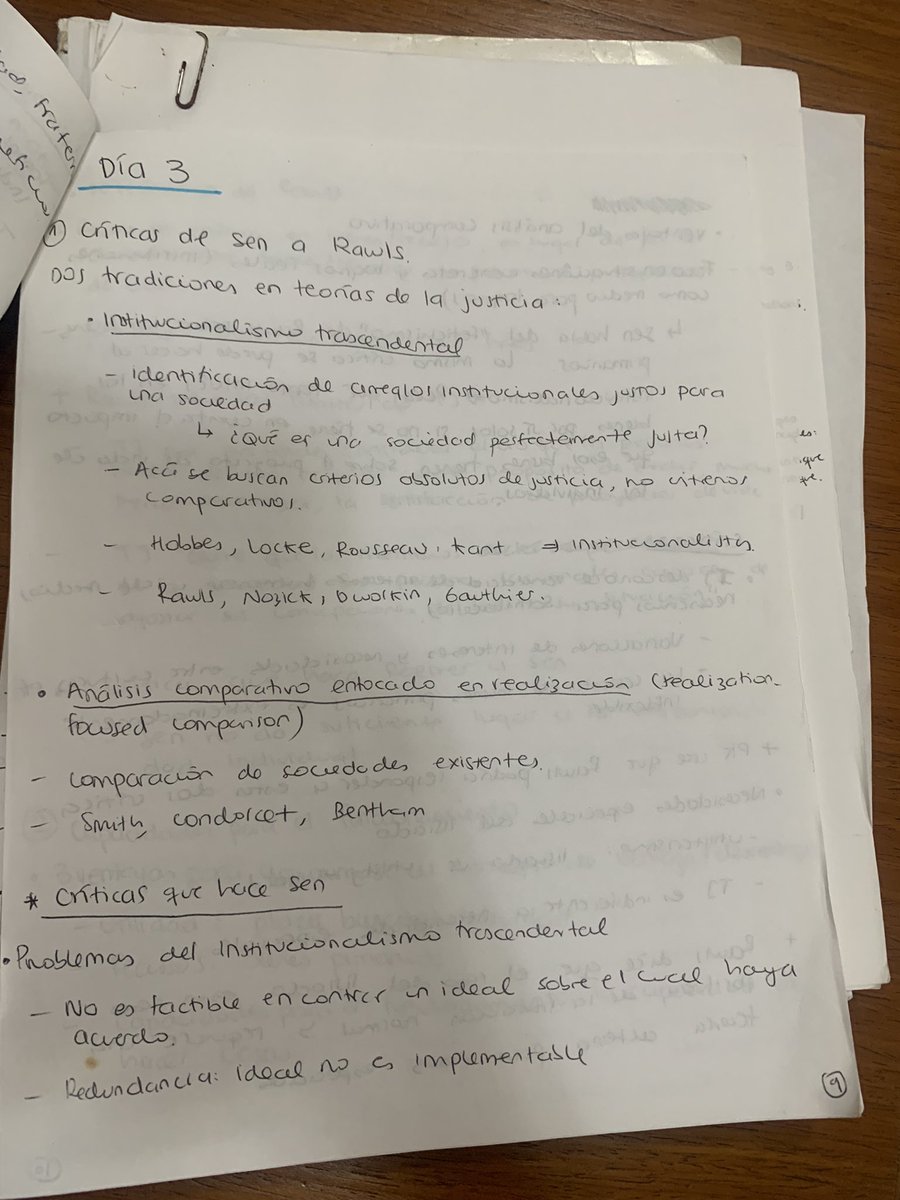 Día 3
① Críticas de Sen a Rawls.
Dos tradiciones en teorías de la justicia:
• Institucionalismo trascendental
- Identificación de arreglos institucionales justos para
una sociedad
↳ ¿Qué es una sociedad perfectamente justa?
- Acá se buscan criterios absolutos de justicia, no criterios
comparativos.
- Hobbes, Locke, Rousseau, Kant ⇒ institucionalistas.
- Rawls, Nozick, Dworkin, Gauthier.
• Análisis comparativo enfocado en realización (realization-
focused comparison)
- Comparación de sociedades existentes.
- Smith, Condorcet, Bentham
* Críticas que hace Sen
• Problemas del Institucionalismo trascendental
- No es factible encontrar un ideal sobre el cual haya
acuerdo.
- Redundancia: ideal no es implementable
9